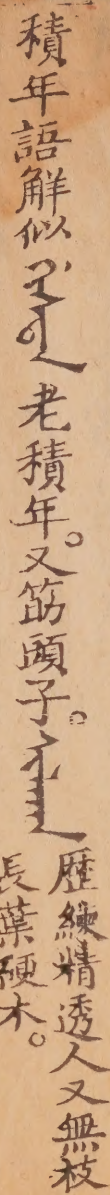 積年語觧似 老積年。又筋頭子。
歴練精透人又無枝
長葉硬木。